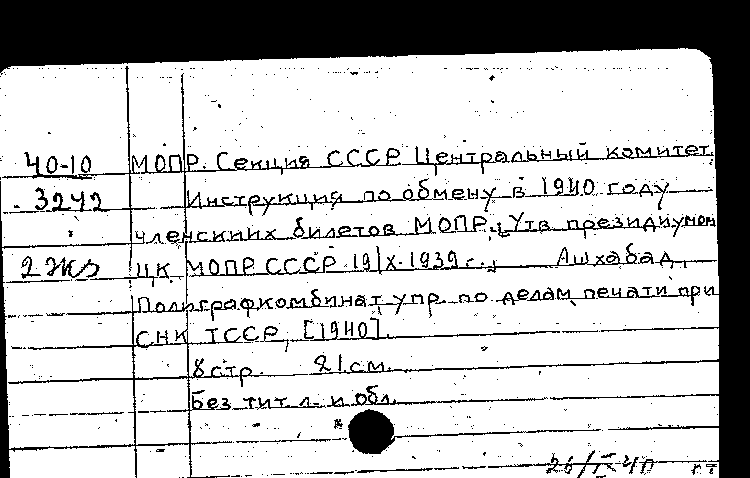 40-10 МОПР. Секция СССР. Центральный комитет.
3242 Инструкция по обмену в 1940 году
членских билетов МОПР. Утв президиумом
2 экз ЦК МОПР СССР 19/X-1939 г. Ашхабад,
Полиграфкомбинат упр. по делам печати при
СНК ТССР, [1940].
8 стр. 21 см.
Без тит. л. и обл.
26/IX 40 гт